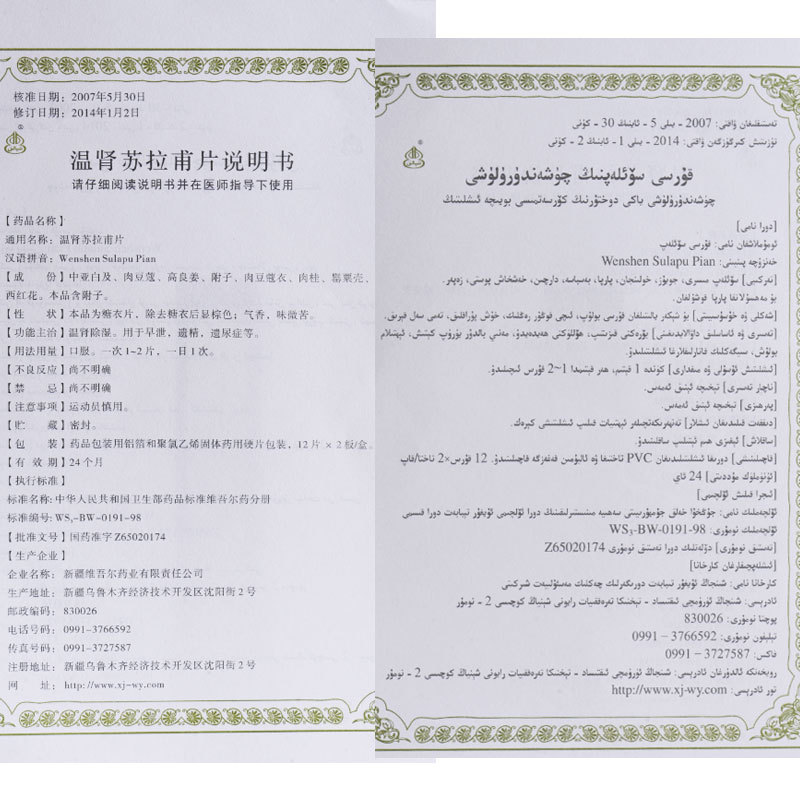 核准日期：2007年5月30日
修订日期：2014年1月2日
温肾苏拉甫片说明书
请仔细阅读说明书并在医师指导下使用
【药品名称】
通用名称：温肾苏拉甫片
汉语拼音：Wenshen Sulapu Pian
【成　份】中亚白及、肉豆蔻、高良姜、附子、肉豆蔻衣、肉桂、罂粟壳、
西红花。本品含附子。
【性　状】本品为糖衣片，除去糖衣后显棕色；气香，味微苦。
【功能主治】温肾除湿。用于早泄，遗精，遗尿症等。
【用法用量】口服。一次1~2片，一日1次。
【不良反应】尚不明确
【禁　忌】尚不明确
【注意事项】运动员慎用。
【贮　藏】密封。
【包　装】药品包装用铝箔和聚氯乙烯固体药用硬片包装，12片×2板/盒。
【有 效 期】24个月
【执行标准】
标准名称：中华人民共和国卫生部药品标准维吾尔药分册
标准编号：WS₃-BW-0191-98
【批准文号】国药准字Z65020174
【生产企业】
企业名称：新疆维吾尔药业有限责任公司
生产地址：新疆乌鲁木齐经济技术开发区沈阳街2号
邮政编码：830026
电话号码：0991-3766592
传真号码：0991-3727587
注册地址：新疆乌鲁木齐经济技术开发区沈阳街2号
网　址：http://www.xj-wy.com
تەستىقلىغان ۋاقتى: 2007 - يىلى 5 - ئاينىڭ 30 - كۈنى
تۈزىتىش كىرگۈزگەن ۋاقتى: 2014 - يىلى 1 - ئاينىڭ 2 - كۈنى
قۇرسى سۆئلەپنىڭ چۈشەندۈرۈلۈشى
چۈشەندۈرۈلۈشى ياكى دوختۇرنىڭ كۆرسەتمىسى بويىچە ئىشلىتىڭ
[دورا نامى]
ئومۇملاشقان نامى: قۇرسى سۆئلەپ
خەنزۇچە پىنيىنى: Wenshen Sulapu Pian
[تەركىبى] سۆئلەپ مىسرى، جوۋۇز، خولىنجان، پارپا، بەسباسە، دارچىن، خەشخاش پوستى، زەپەر.
بۇ مەھسۇلاتقا پارپا قوشۇلغان.
[ئىشلىتىش ئۇسۇلى ۋە مىقدارى] كۈندە 1 قېتىم، ھەر قېتىمدا 1~2 قۇرس ئىچىلىدۇ.
[ناچار تەسىرى] تېخىچە ئېنىق ئەمەس.
[پەرھىزى] تېخىچە ئېنىق ئەمەس.
[دىققەت قىلىدىغان ئىشلار] تەنھەرىكەتچىلەر ئېھتىيات قىلىپ ئىشلىتىشى كېرەك.
[ساقلاش] ئېغىزى ھىم ئېتىلىپ ساقلىنىدۇ.
[ئۈنۈملۈك مۇددىتى] 24 ئاي
[ئىجرا قىلىش ئۆلچىمى]
ئۆلچەملىك نومۇرى: WS₃-BW-0191-98
[تەستىق نومۇرى] دۆلەتنىڭ دورا تەستىق نومۇرى Z65020174
[ئىشلەپچىقارغان كارخانا]
كارخانا نامى: شىنجاڭ ئۇيغۇر تىبابەت دورىگەرلىك چەكلىك مەسئۇلىيەت شىركىتى
ئادرېسى: شىنجاڭ ئۈرۈمچى ئىقتىساد - تېخنىكا تەرەققىيات رايونى شېنياڭ كوچىسى 2 - نومۇر
پوچتا نومۇرى: 830026
تېلېفون نومۇرى: 3766592 – 0991
فاكس: 3727587 – 0991
تور ئادرېسى: http://www.xj-wy.com